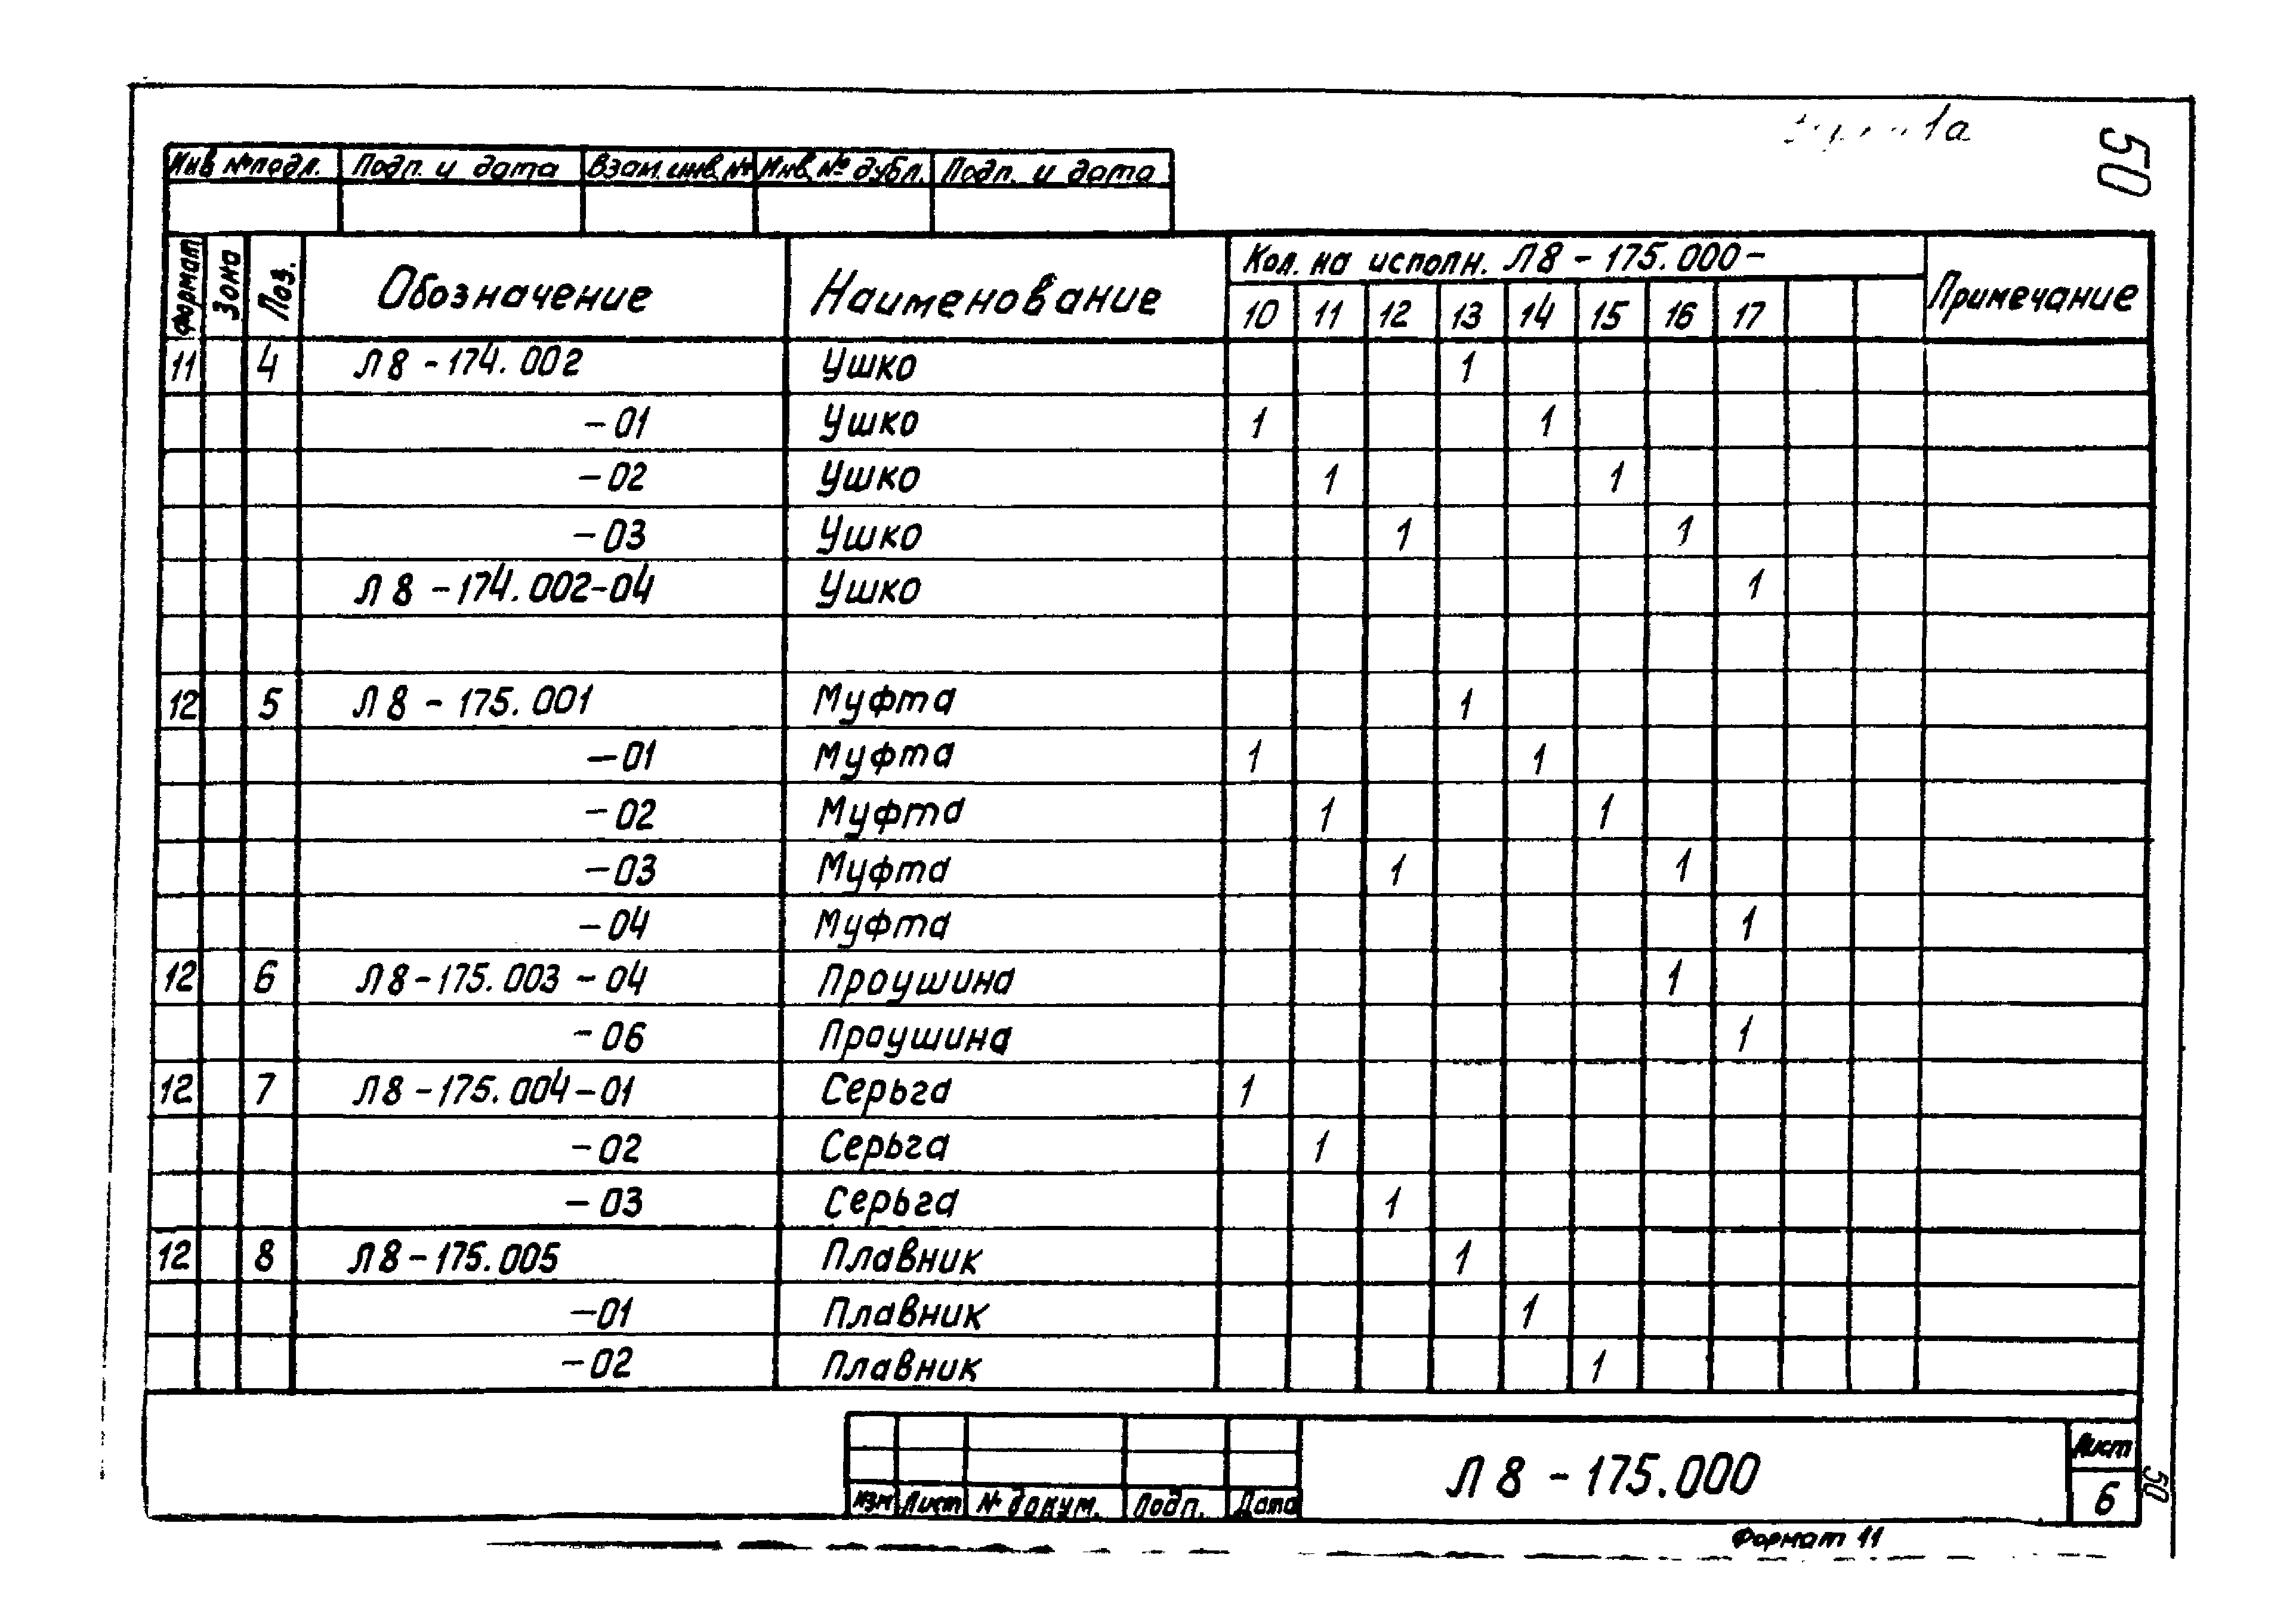 1а
50
Инв № подл. Подп. и дата Взам. инв. № Инв. № дубл. Подп. и дата
Формат Зона Поз. Обозначение Наименование Кол. на исполн. Л8-175.000- Примечание
10 11 12 13 14 15 16 17
11 4 Л8-174.002 Ушко 1
-01 Ушко 1 1
-02 Ушко 1 1
-03 Ушко 1 1
Л8-174.002-04 Ушко 1
12 5 Л8-175.001 Муфта 1
-01 Муфта 1 1
-02 Муфта 1 1
-03 Муфта 1 1
-04 Муфта 1
12 6 Л8-175.003-04 Проушина 1
-06 Проушина 1
12 7 Л8-175.004-01 Серьга 1
-02 Серьга 1
-03 Серьга 1
12 8 Л8-175.005 Плавник 1
-01 Плавник 1
-02 Плавник 1
Изм Лист № докум. Подп. Дата
Л8-175.000
Лист
6
50
Формат 11